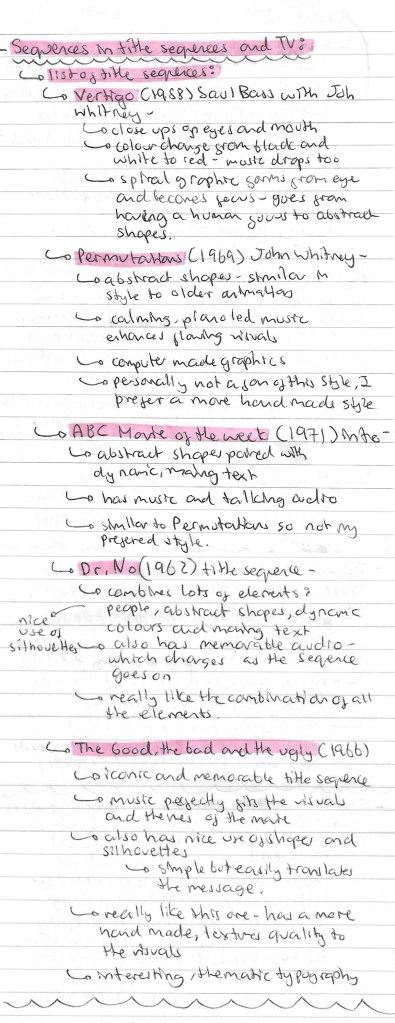 - Sequences in title sequences and TV:
↳ list of title sequences:
↳ Vertigo (1958) Saul Bass with Joh
Whitney -
↳ close ups of eyes and mouth
↳ colour change from black and
white to red - music drops too
↳ spiral graphic forms from eye
and becomes focus - goes from
having a human focus to abstract
shapes.
↳ Permutations (1969) John Whitney -
↳ abstract shapes - similar in
style to older animations
↳ calming, piano led music
enhances flowing visuals
↳ computer made graphics
↳ personally not a fan of this style, I
prefer a more hand made style
↳ ABC Movie of the week (1971) intro -
↳ abstract shapes paired with
dynamic, moving text
↳ has music and talking audio
↳ similar to Permutations so not my
prefered style.
↳ Dr. No (1962) title sequence -
↳ combines lots of elements:
people, abstract shapes, dynamic
colours and moving text
nice use of silhouettes
↳ also has memorable audio -
which changes as the seqence
goes on
↳ really like the combination of all
the elements.
↳ The Good, the bad and the ugly (1966)
↳ iconic and memorable title sequence
↳ music perfectly fits the visuals
and themes of the movie
↳ also has nice use of shapes and
silhouettes
↳ simple but easily translates
the message.
↳ really like this one - has a more
hand made, texture quality to
the visuals
↳ interesting, thematic typography